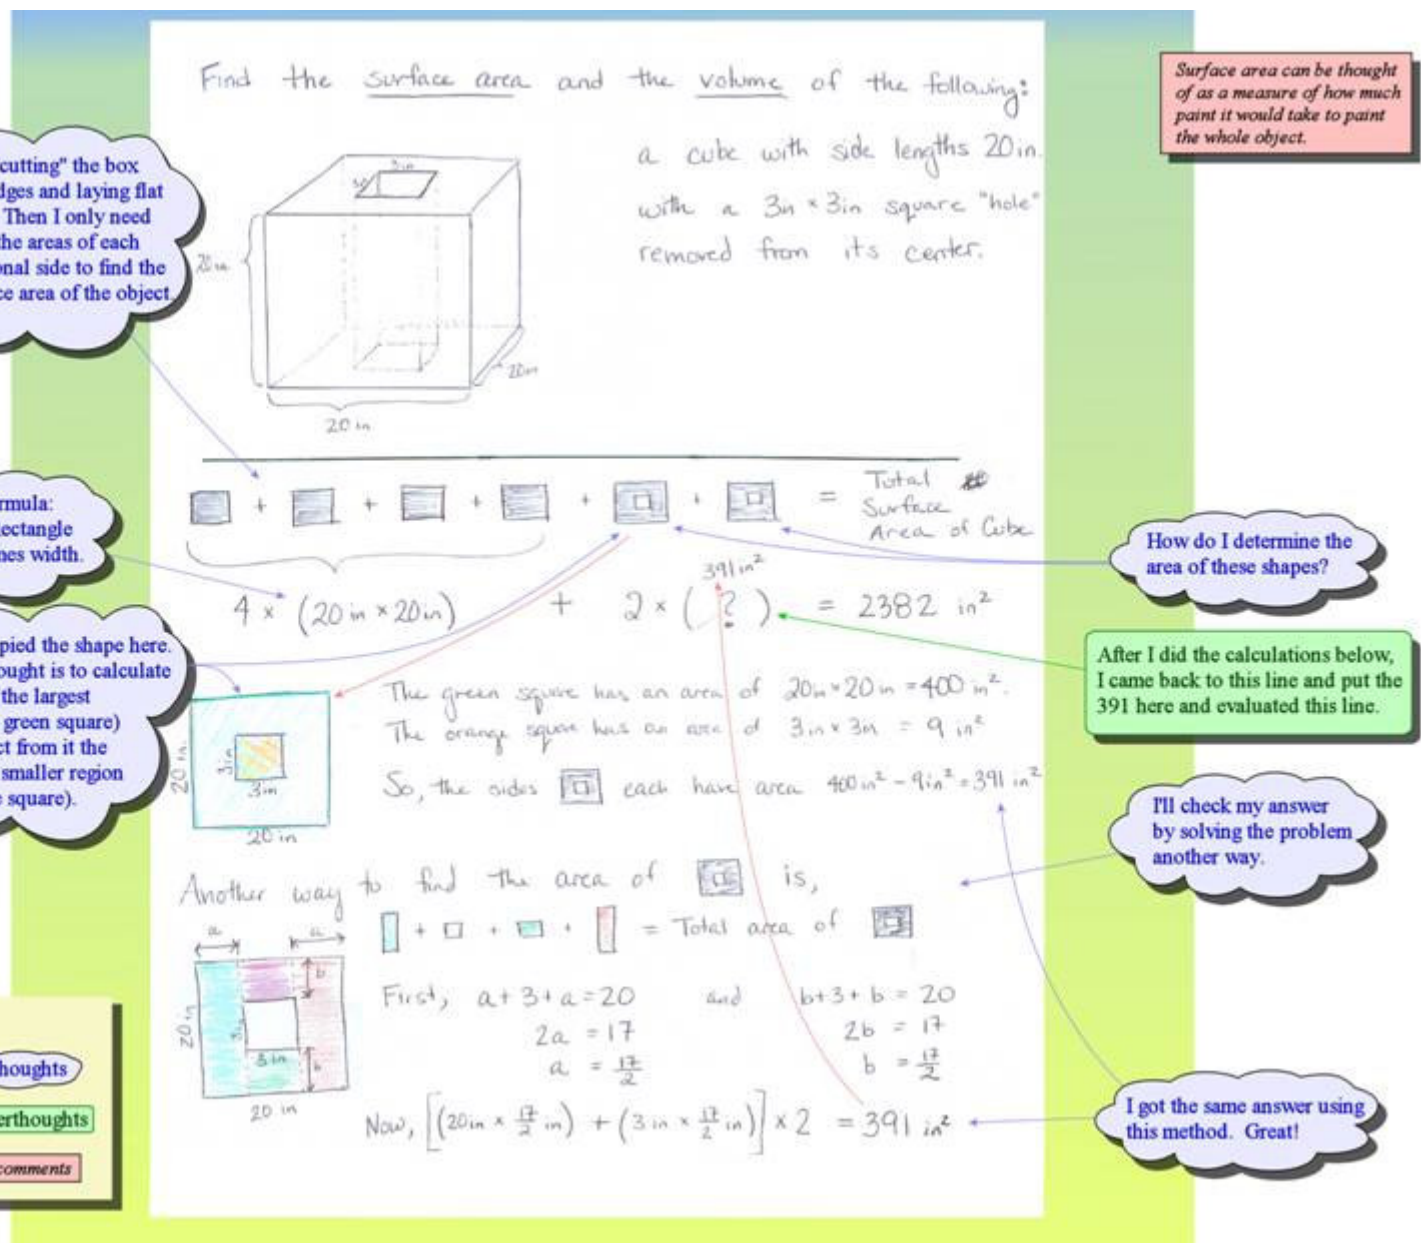 Find the surface area and the volume of the following:
a cube with side lengths 20in.
with a 3in × 3in square "hole"
removed from its center.
3in
3in
20in
20in
20 in
Surface area can be thought
of as a measure of how much
paint it would take to paint
the whole object.
cutting" the box
dges and laying flat
Then I only need
the areas of each
onal side to find the
ce area of the object.
+ + + + + = Total
Surface
Area of Cube
rmula:
ectangle
nes width.
How do I determine the
area of these shapes?
391in²
4 × (20 in × 20in) + 2 × ( ? ) = 2382 in²
pied the shape here.
ought is to calculate
the largest
green square)
ct from it the
smaller region
e square).
After I did the calculations below,
I came back to this line and put the
391 here and evaluated this line.
20 in.
3in
3in
20 in
The green square has an area of 20in × 20 in = 400 in².
The orange square has an area of 3in × 3in = 9 in²
So, the sides each have area 400in² - 9in² = 391 in²
I'll check my answer
by solving the problem
another way.
Another way to find the area of is,
+ + + = Total area of
a a
b
20 in
3in
3in
b
20 in
First, a + 3 + a = 20 and b+3+b = 20
2a = 17 2b = 17
a = 17/2 b = 17/2
Now, [(20in × 17/2 in) + (3 in × 17/2 in)] × 2 = 391 in²
I got the same answer using
this method. Great!
houghts
erthoughts
comments